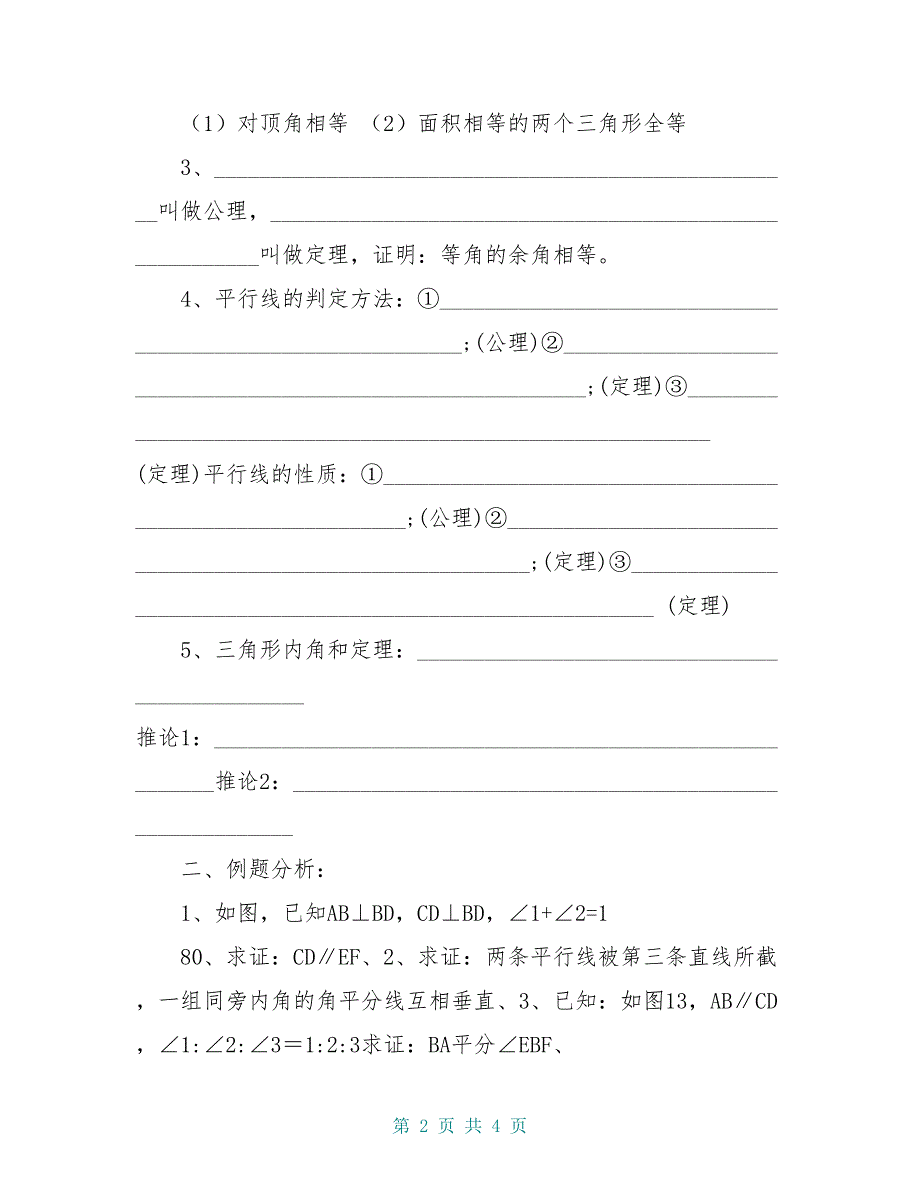 (1)对顶角相等 (2)面积相等的两个三角形全等
3、__________________________________________________
__叫做公理，_____________________________________________
___________叫做定理，证明：等角的余角相等。
4、平行线的判定方法：①______________________________
_____________________________;(公理)②___________________
________________________________________;(定理)③________
___________________________________________________
(定理)平行线的性质：①___________________________________
________________________;(公理)②________________________
___________________________________;(定理)③_____________
______________________________________________ (定理)
5、三角形内角和定理：________________________________
_______________
推论1：__________________________________________________
_______推论2：___________________________________________
______________
二、例题分析：
1、如图，已知AB⊥BD，CD⊥BD，∠1+∠2=1
80、求证：CD∥EF、2、求证：两条平行线被第三条直线所截
，一组同旁内角的角平分线互相垂直、3、已知：如图13，AB∥CD
，∠1:∠2:∠3＝1:2:3求证：BA平分∠EBF、
第 2 页 共 4 页